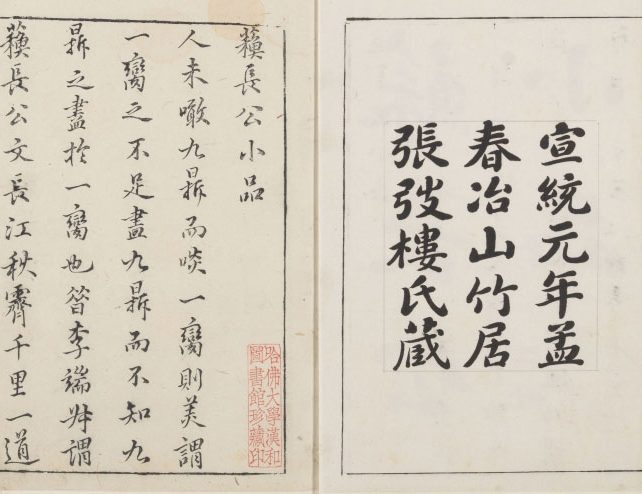 宣統元年孟
春冶山竹居
張弢樓氏藏
蘓長公小品
人未噉九鼎而啖一臠則美謂
一臠之不足盡九鼎而不知九
鼎之盡於一臠也昔李端叔謂
蘓長公文長江秋霽千里一道
哈佛大學漢和
圖書館珍藏印